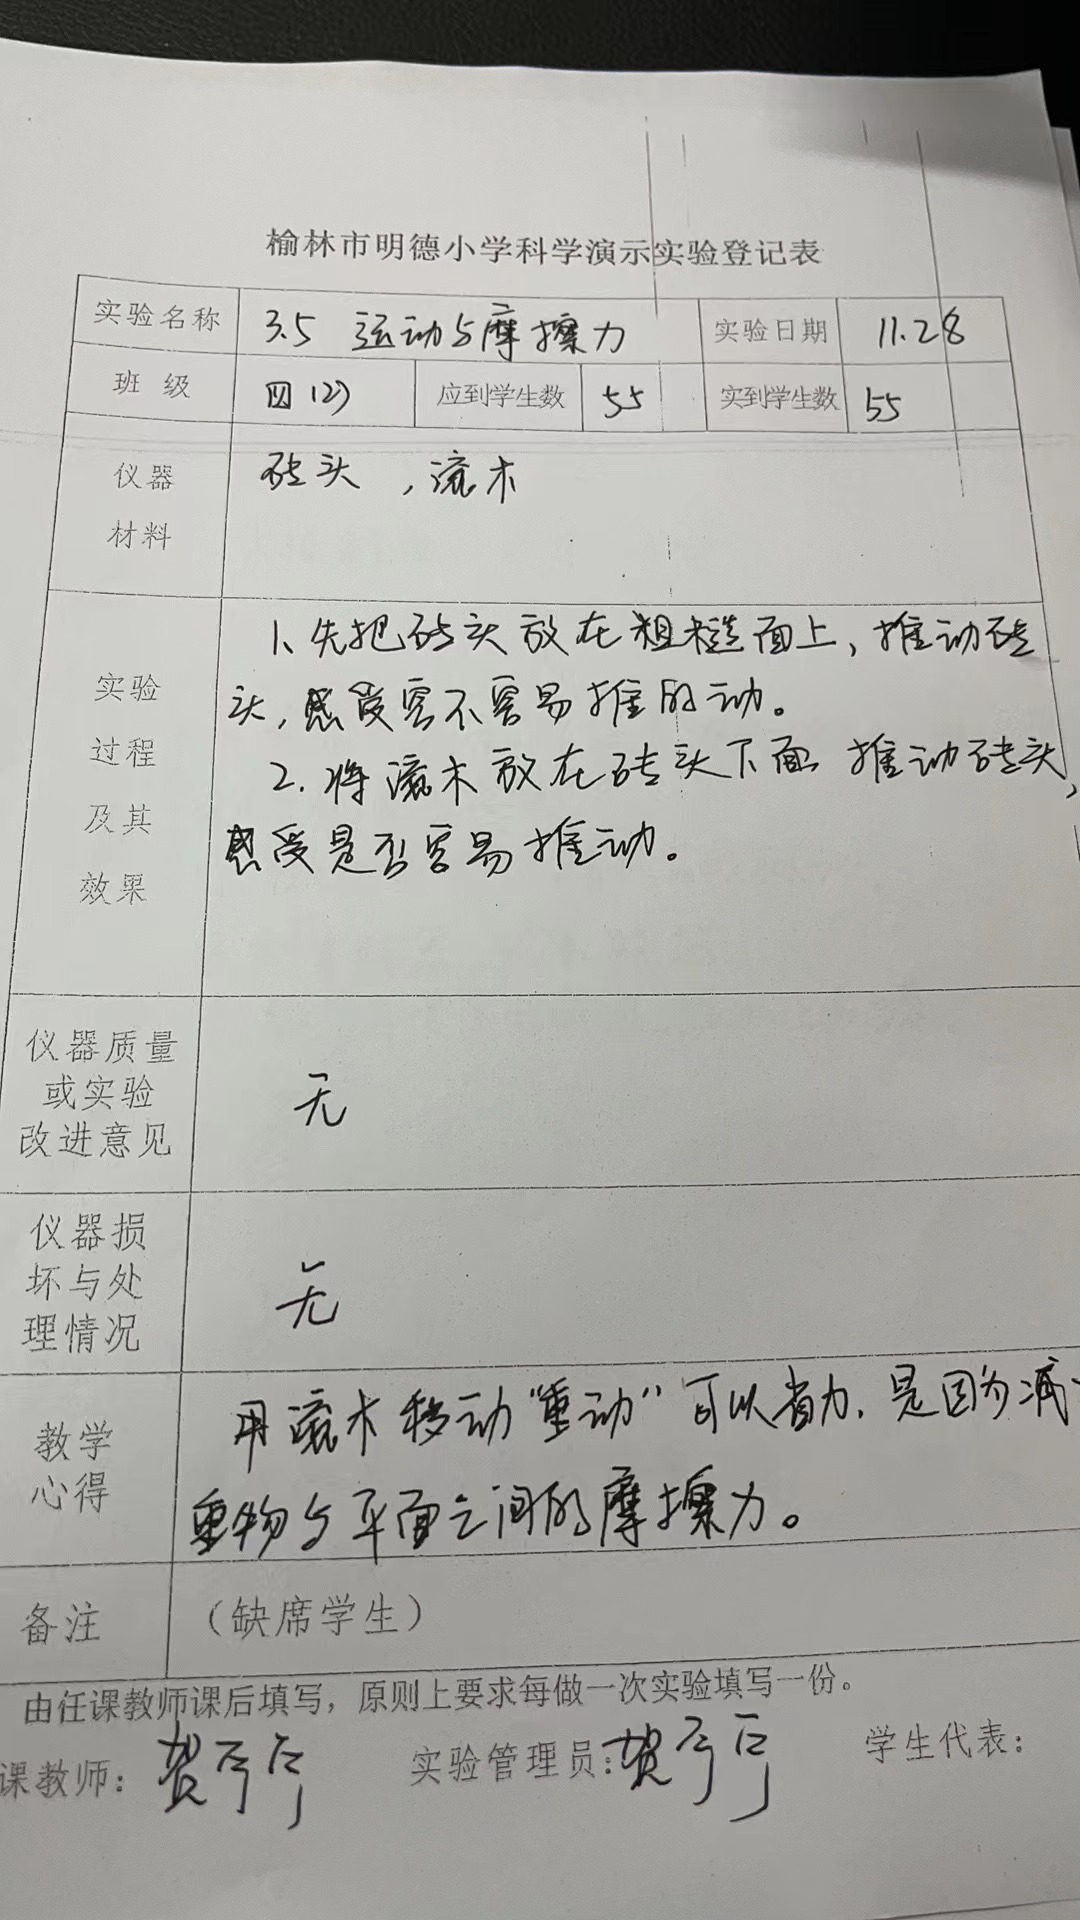 榆林市明德小学科学演示实验登记表
实验名称 3.5 运动与摩擦力 实验日期 11.28
班 级 四(2) 应到学生数 55 实到学生数 55
仪器 砖头,流木
材料
1、先把砖头放在粗糙面上,推动砖
实验 头,感受容不容易推的动。
过程 2、将流木放在砖头下面 推动砖头,
及其 感受是否容易推动。
效果
仪器质量
或实验 无
改进意见
仪器损
坏与处 无
理情况
教学 用流木移动“重动”可以省力,是因为减
心得 重物与平面之间的摩擦力。
备注 (缺席学生)
由任课教师课后填写,原则上要求每做一次实验填写一份。
课教师: 贺 实验管理员: 贺 学生代表: